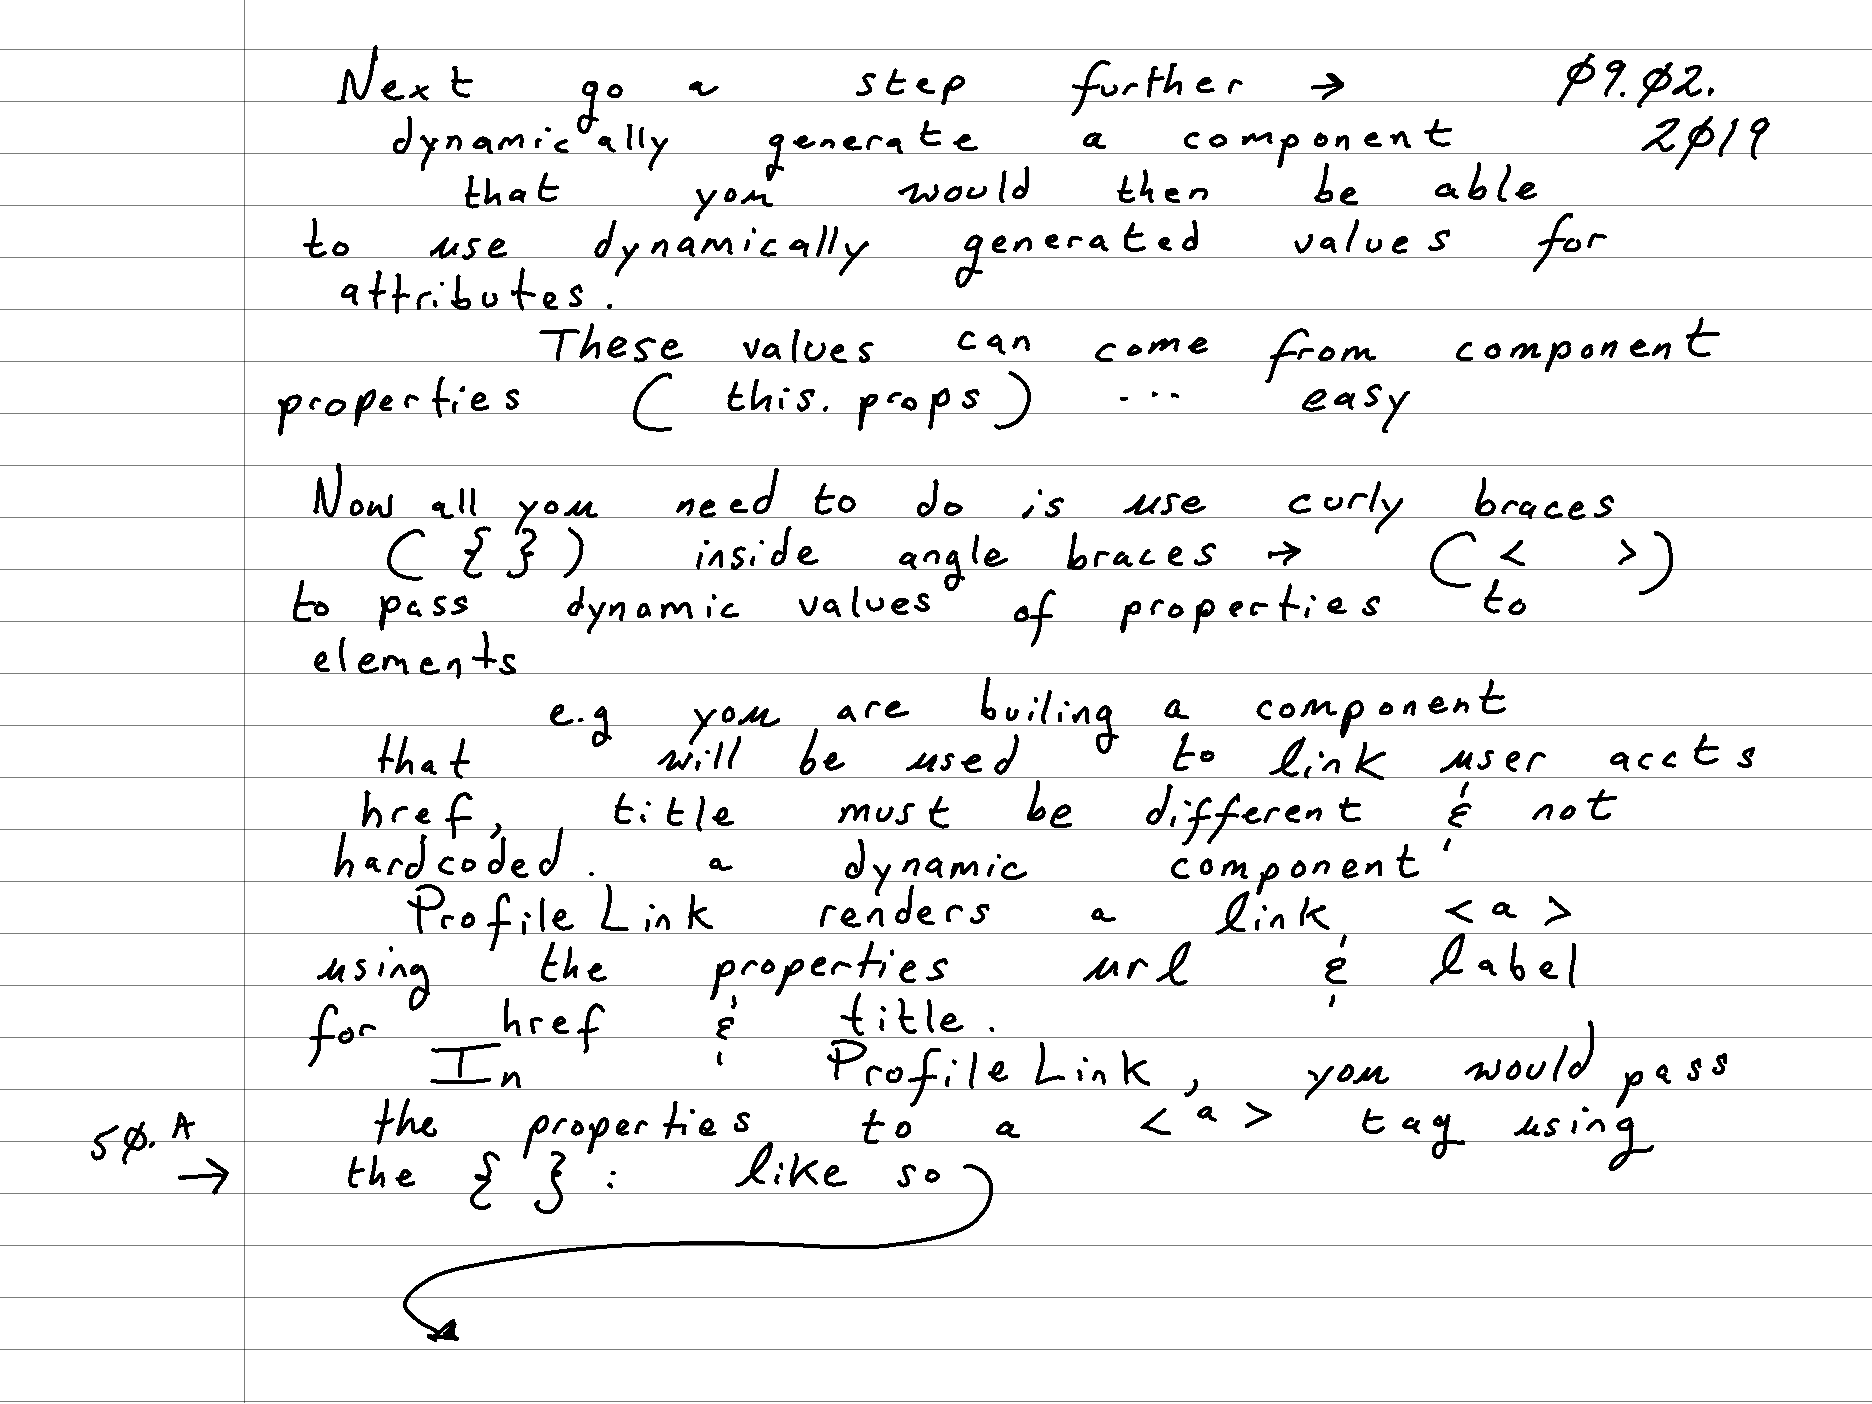 Next go a step further → 09.02.
dynamically generate a component 2019
that you would then be able
to use dynamically generated values for
attributes.
These values can come from component
properties ( this.props) ... easy
Now all you need to do is use curly braces
( { } ) inside angle braces → ( < > )
to pass dynamic values of properties to
elements
e.g you are builing a component
that will be used to link user accts
href, title must be different & not
hardcoded. a dynamic component
ProfileLink renders a link <a>
using the properties url & label
for href & title.
In ProfileLink, you would pass
the properties to a <a> tag using
50.A → the { } : like so